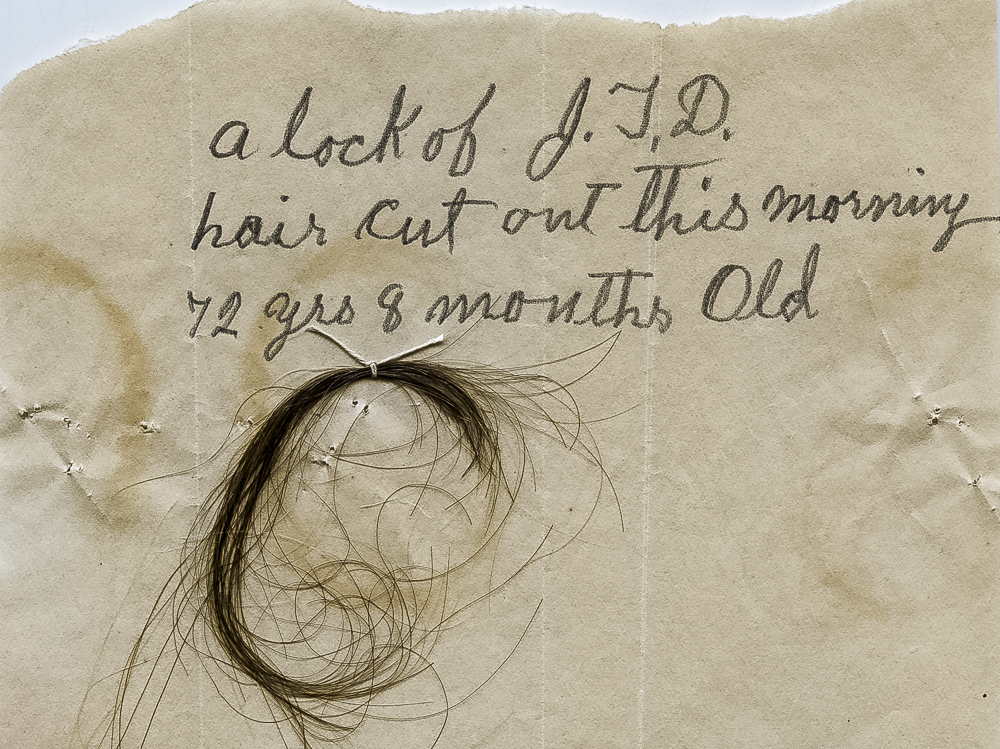 a lock of J.T.D.
hair cut out this morning
72 yrs 8 months Old